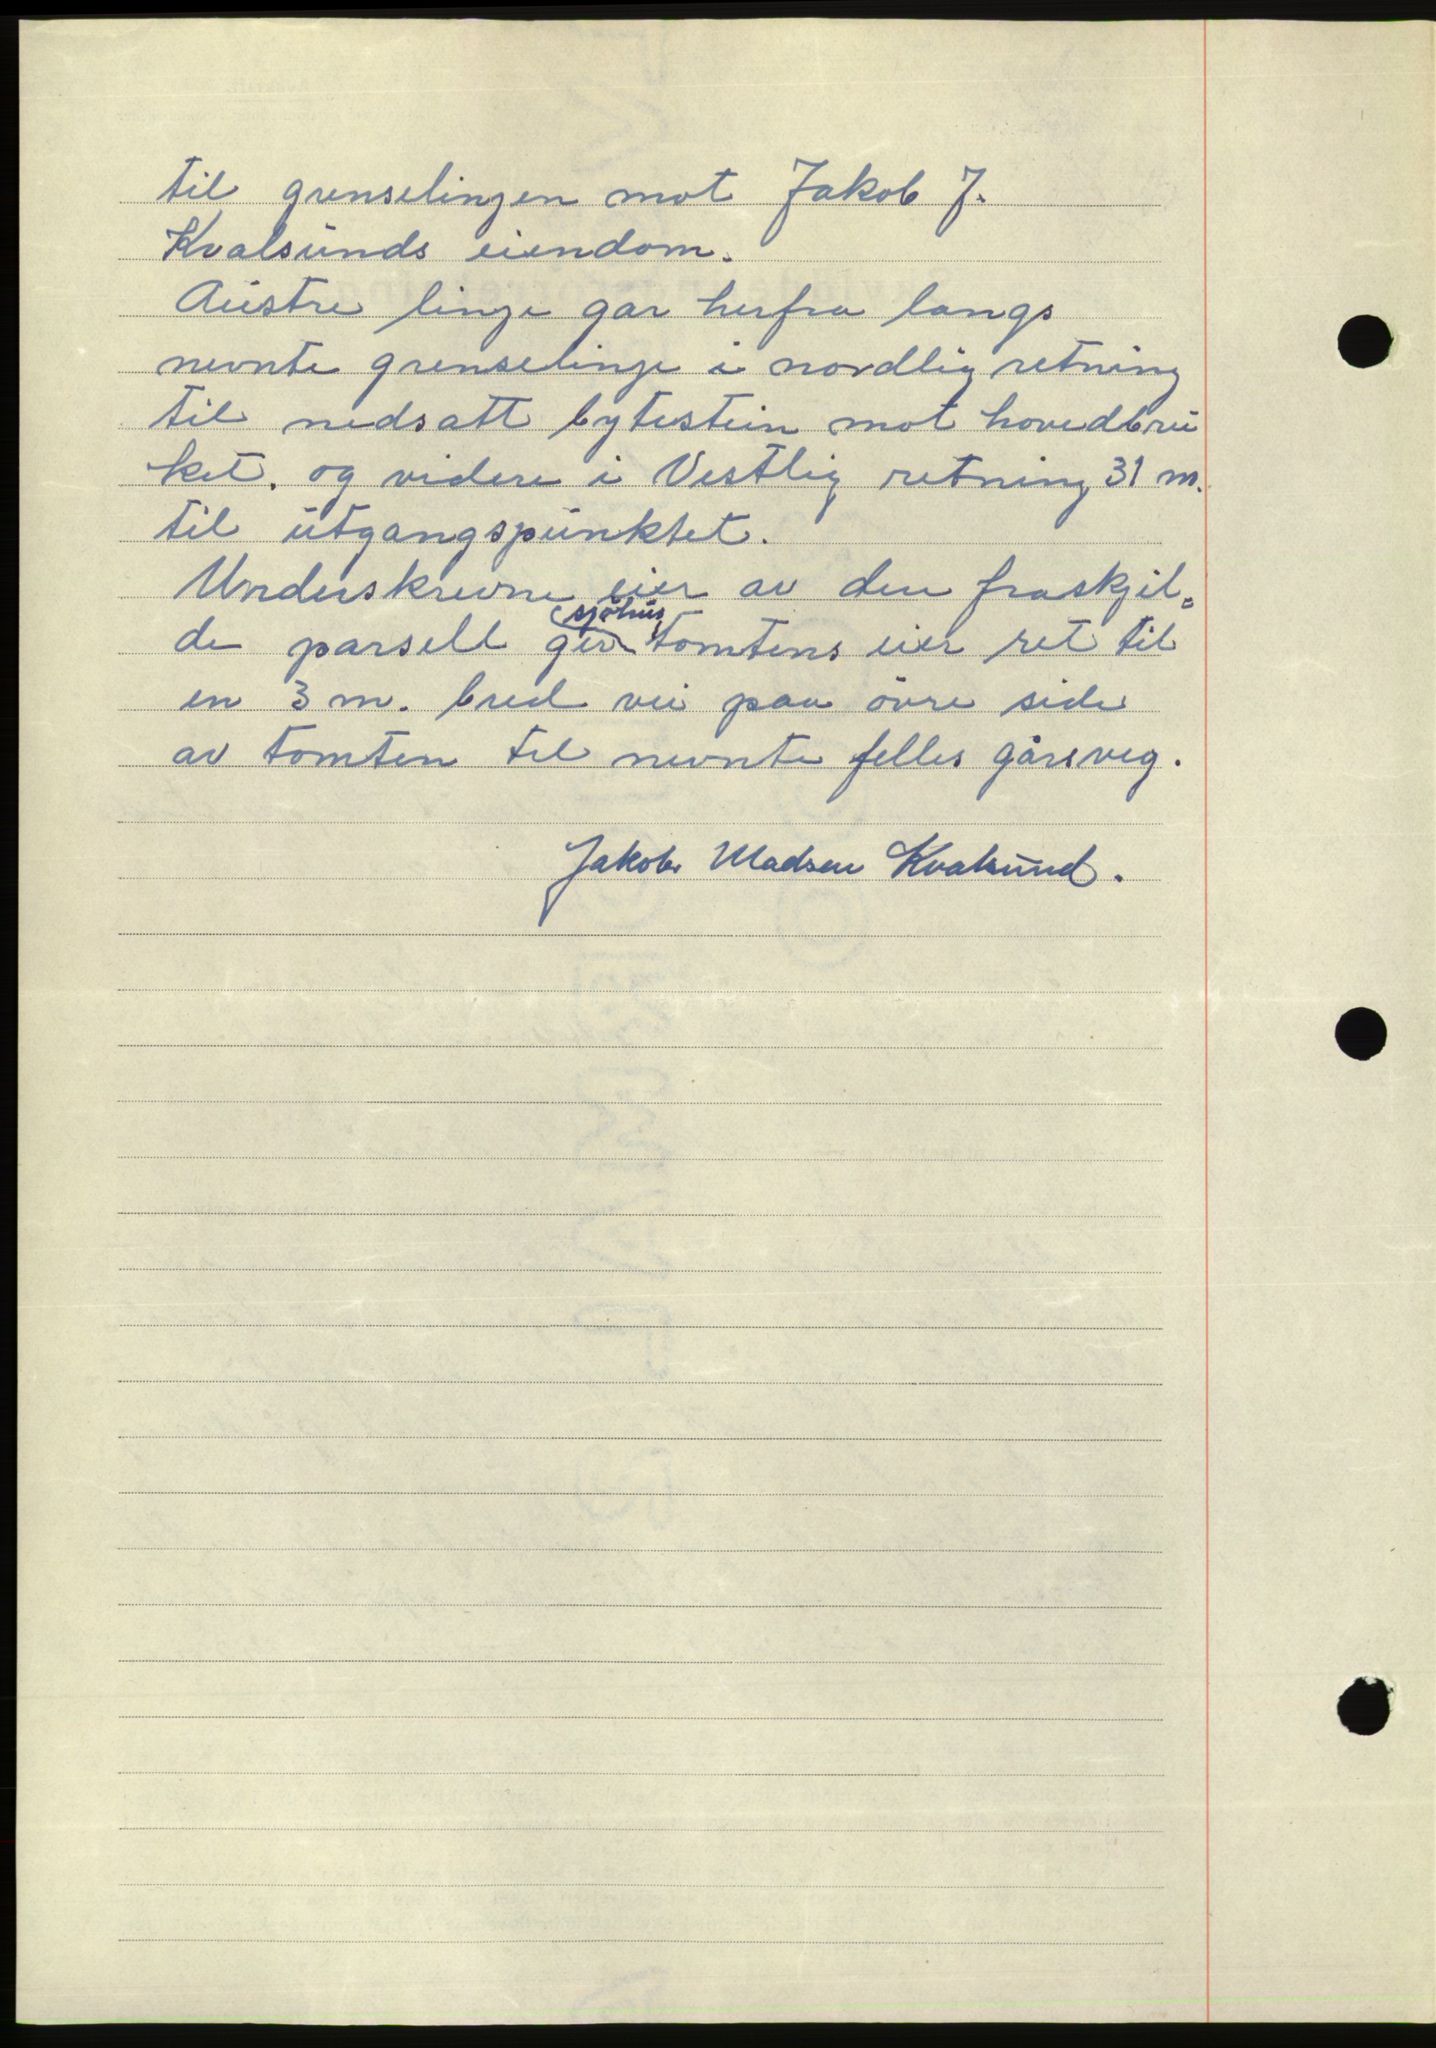 til grenselinjen mot Jakob J.
Kvalsunds eiendom.
Austre linje gar herfra langs
nevnte grenselinje i nordlig retning
til nedsatt bytestein mot hovedbru
ket. og videre i Vestlig retning 31 m.
til utgangspunktet.
Underskrevne eier av den fraskjil=
sjöhus
de parsell gir tomtens eier ret til
en 3 m. bred vei paa övre side
av tomten til nevnte felles gårsveg.
Jakob Madsen Kvalsund.